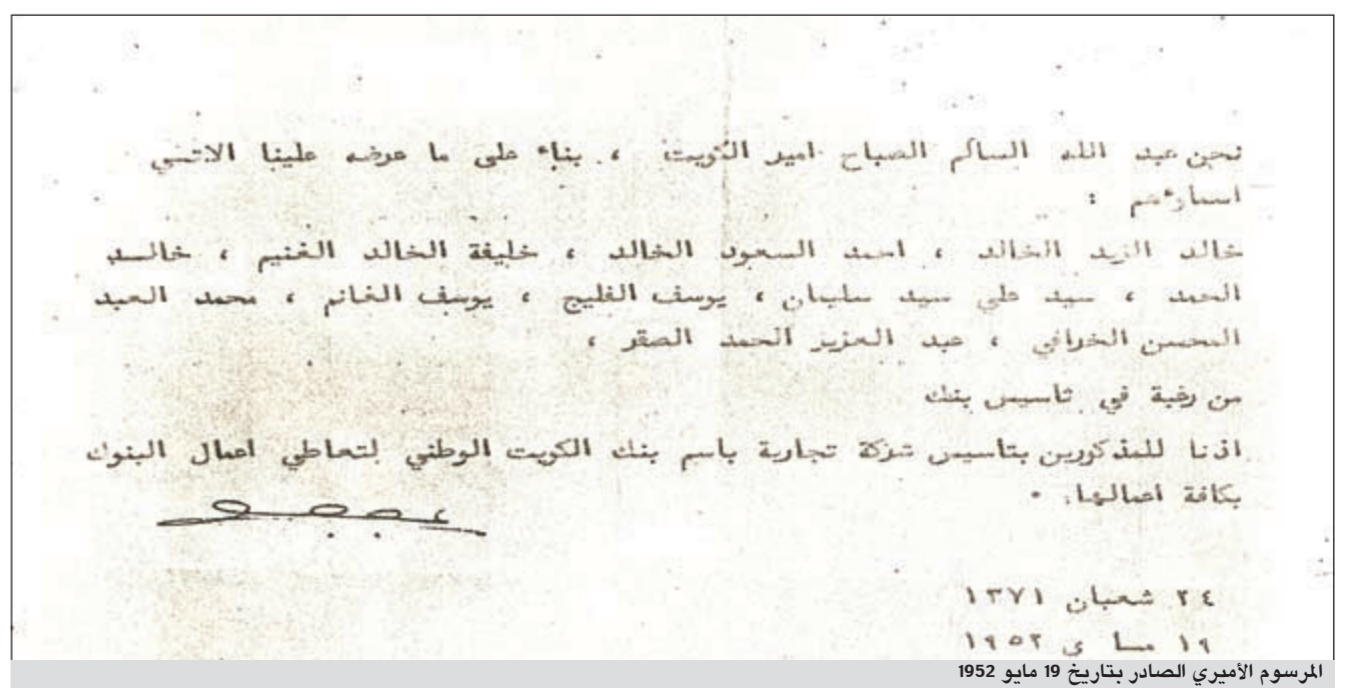 نحن عبد الله السالم الصباح امير الكويت ، بناء على ما عرضه علينا الاتـي
اسماؤهم :
خالد الزيد الخالد ، احمد السعود الخالد ، خليفة الخالد الغنيم ، خالـد
الحمد ، سيد علي سيد سليمان ، يوسف الفليج ، يوسف الغانم ، محمد العبد
المحسن الخرافي ، عبد العزيز الحمد الصقر ،
من رغبة في تاسيس بنك
اذنا للمذكورين بتاسيس شركة تجارية باسم بنك الكويت الوطني لتعاطي اعمال البنوك
بكافة اعمالها .
٢٤ شعبان ١٣٧١
١٩ مـا ى ١٩٥٢
المرسوم الأميري الصادر بتاريخ 19 مايو 1952